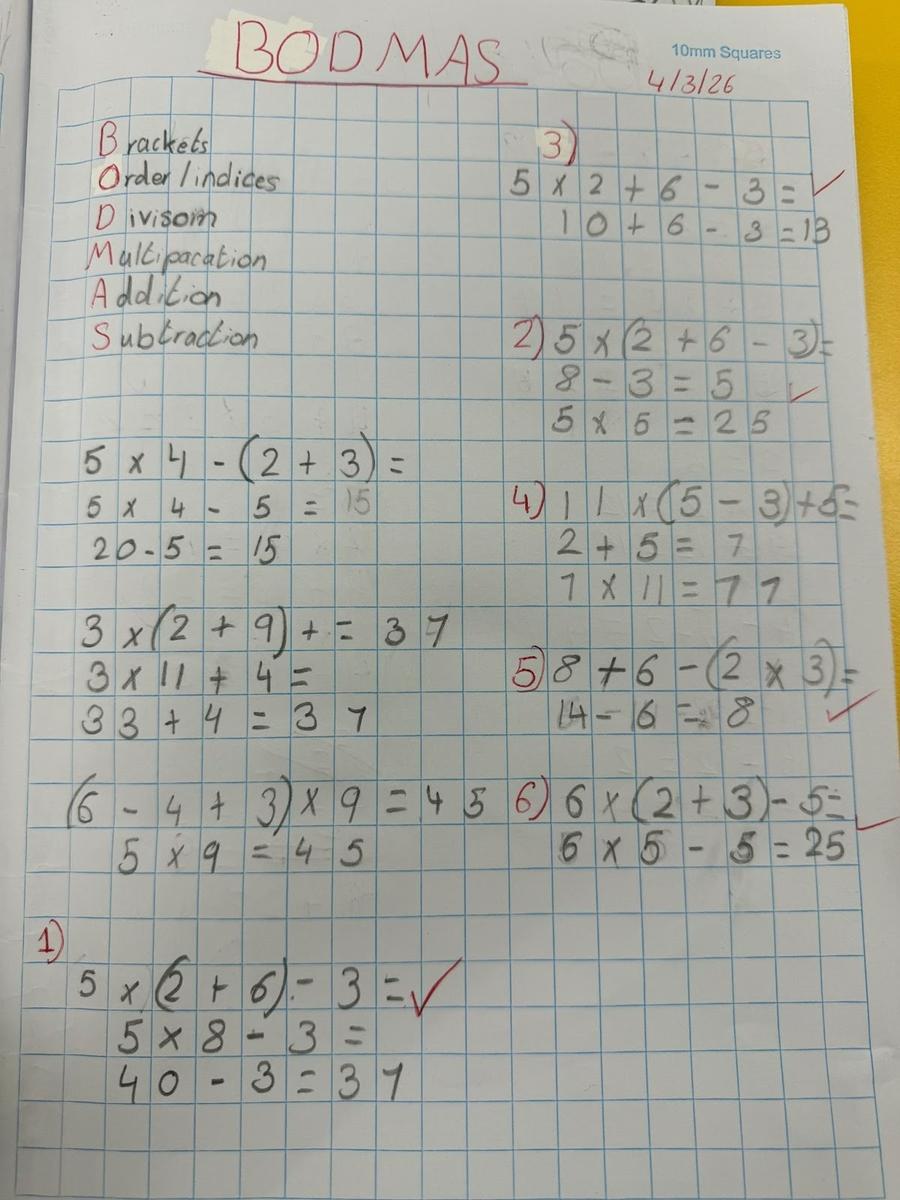 BODMAS
10mm Squares
4/3/26
Brackets
Order/indices
Divisom
Multipacation
Addition
Subtraction
5 x 4 - (2 + 3) =
5 x 4 - 5 = 15
20 - 5 = 15
3 x (2 + 9) + = 37
3 x 11 + 4 =
33 + 4 = 37
(6 - 4 + 3) x 9 = 45
5 x 9 = 45
1)
5 x (2 + 6) - 3 = ✓
5 x 8 - 3 =
40 - 3 = 37
3)
5 x 2 + 6 - 3 = ✓
10 + 6 - 3 = 13
2) 5 x (2 + 6 - 3) =
8 - 3 = 5 ✓
5 x 5 = 25
4) 11 x (5 - 3) + 5 =
2 + 5 = 7
7 x 11 = 77
5) 8 + 6 - (2 x 3) =
14 - 6 = 8 ✓
6) 6 x (2 + 3) - 5 = ✓
6 x 5 - 5 = 25